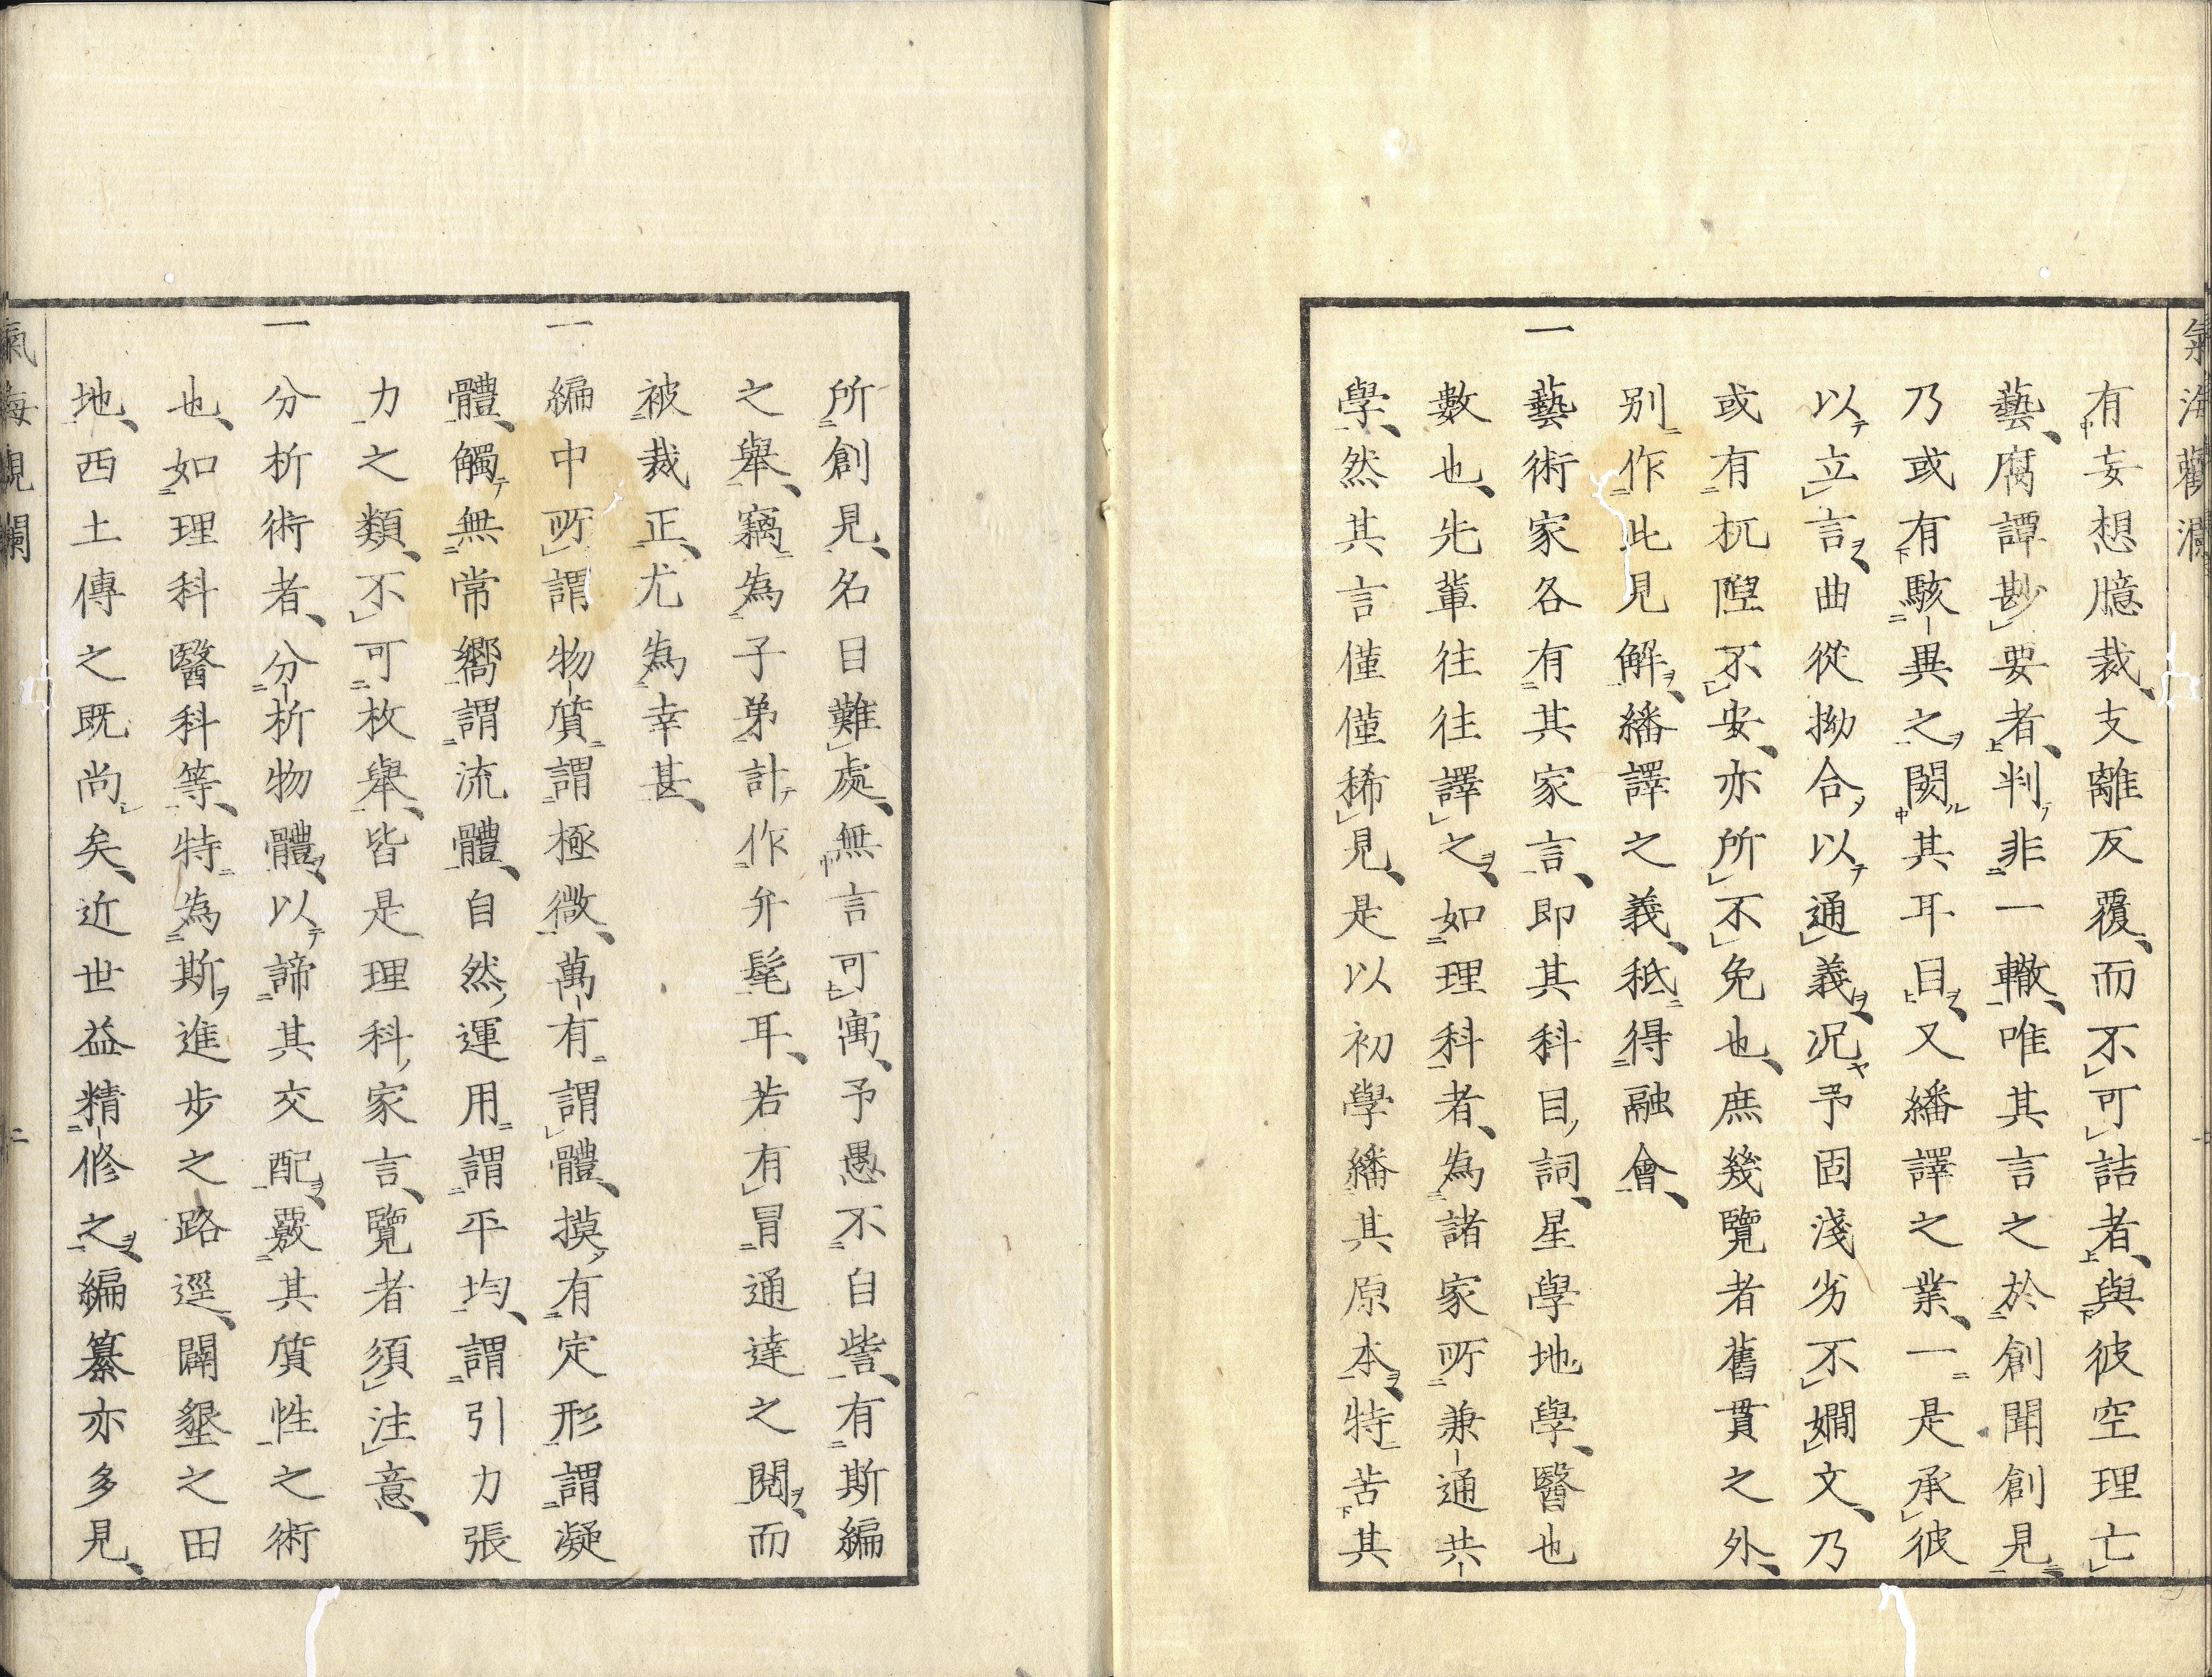 氣海觀瀾
有妄想臆裁、支離反覆、而不可詰者、與彼空理亡
藝、腐譚尠要者、判非一轍、唯其言之於創聞創見、
乃或有駭異之閡其耳目、又繙譯之業、一是承彼
以立言、曲從拗合、以通義、況予固淺劣不嫺文、乃
或有杌隉不安、亦所不免也、庶幾覽者舊貫之外、
別作此見解、繙譯之義、秪得融會、
一藝術家各有其家言、即其科目詞、星學地學、醫也
數也、先輩往往譯之、如理科者、為諸家所兼通共
學、然其言僅僅稀見、是以初學繙其原本、特苦其
所創見、名目難處、無言可寓、予愚不自訾、有斯編
之舉、竊為子弟計、作弁髦耳、若有冒通達之閱、而
被裁正、尤為幸甚、
一編中所謂物質謂極微、萬有謂體、摸有定形謂凝
體、觸無常嚮謂流體、自然運用謂平均、謂引力張
力之類、不可枚舉、皆是理科家言、覽者須注意、
一分析術者、分析物體、以諦其交配、覈其質性之術
也、如理科醫科等、特為斯進步之路逕、闢墾之田
地、西土傳之既尚矣、近世益精修之、編纂亦多見、
氣海觀瀾 二